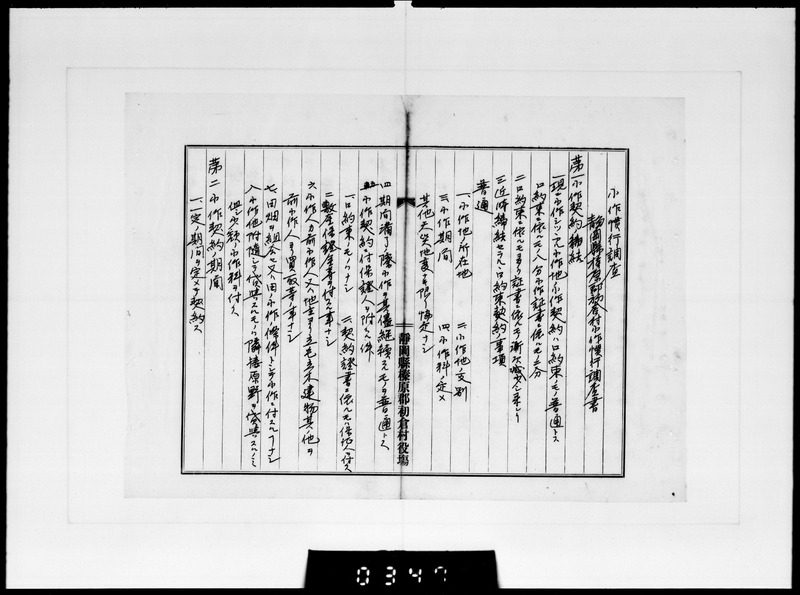 小作慣行調査
静岡縣榛原郡初倉村小作慣行調査書
第一小作契約締結
一現ニ小作シツヽアル小作地ノ小作契約ハ口約束ノモノ普通トス
口約束ニ依ルモノ八分小作証書ニ依ルモノ二分
二口約束ニ依ルモノヨリ証書ニ依ルモノ漸次
三近時締結セラルヽ口約束契約事項
普通
一、小作地ノ所在地 二、小作地ノ交別
三、小作期間 四、小作料ノ定メ
其他天災地変
静岡縣榛原郡初倉村役場
四期間満了ノ際小作ノ其儘継続スルモノヲ普通トス
小作契約ニ付保證人ヲ附スル件
一、口約束ノモノハナシ 二、契約證書ニ依ルモノハ保證人ヲ付ス
敷金保證金等ヲ付スル事ナシ
六小作人カ前小作人又ハ地主ヨリ立毛立木建物其ノ他ヲ
前小作人ヨリ買取等ノ事ナシ
七、田畑ヲ組合セ又ハ田小作ノ條件トシテ小作ニ付スルコトナシ
八小作地附随シテ貸與スルモノハ隣接原野ヲ貸與スルノミ
但シ少額ノ小作料ヲ付ス
第二小作契約ノ期間
一、一定ノ期間ヲ定メテ契約ス
0347